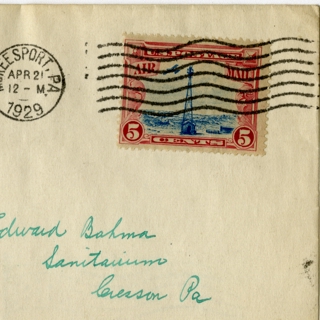 EESPORT, PA
APR 21
12 - M
1929
U.S. POSTAGE
AIR MAIL
5 5
CENTS
Edward Bahma
Sanitarium
Cresson Pa